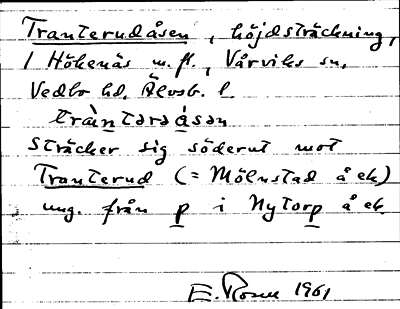 Tranterudåsen, höjdsträckning,
1 Hökenäs m. fl., Vårviks sn,
Vedbo hd, Älvsb. l.
tràntəraåsən
sträcker sig söderut mot
Tranterud (= Mölnstad å ek)
ung. från p i Nytorp å ek.
E. Rosen 1961